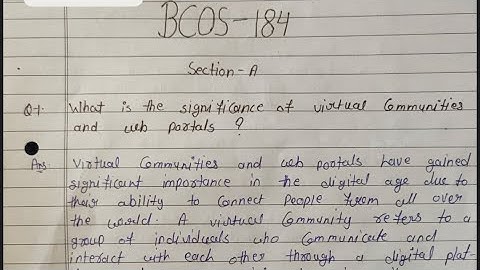 BCOS-184
Section-A
Q1. What is the significance of virtual Communities
and web portals ?
Ans Virtual Communities and web portals have gained
significant importance in the digital age due to
their ability to connect People from all over
the world. A virtual Community refers to a
group of individuals who Communicate and
interact with each other through a digital plat-